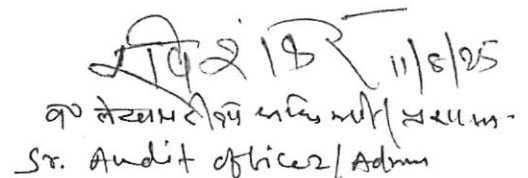 11/8/25
व० लेखापरीक्षा अधिकारी/प्रशासन
Sr. Audit Officer/Admn